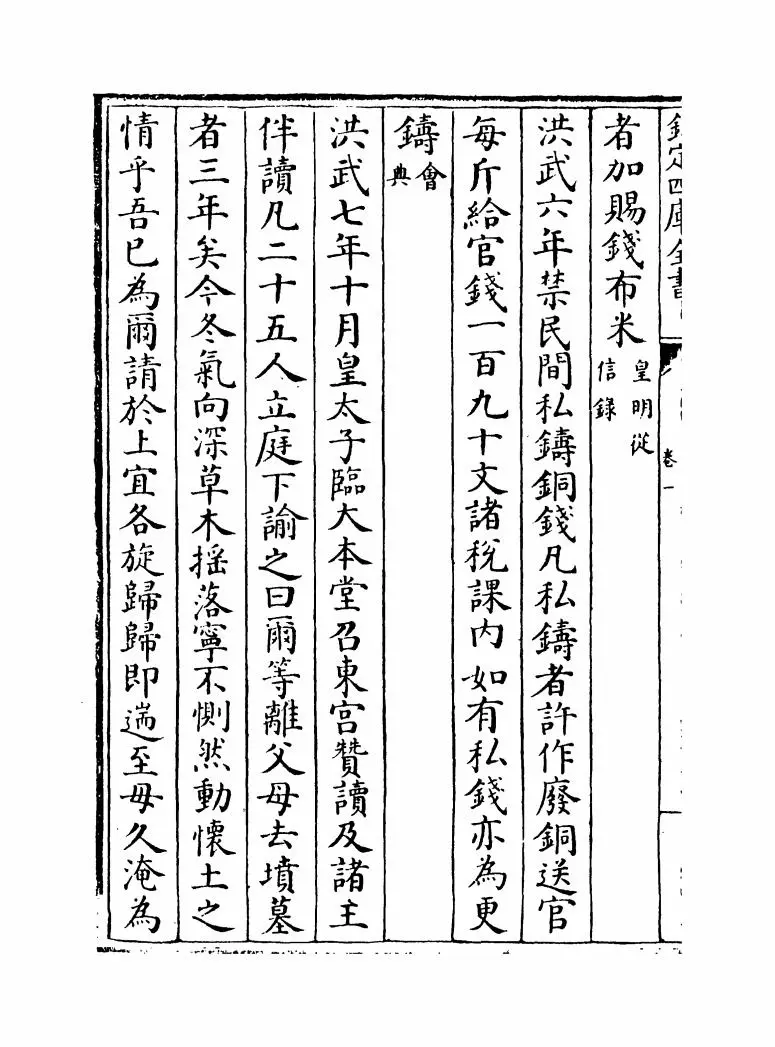 欽定四庫全書
卷一
者加賜錢布米皇明從信錄
洪武六年禁民間私鑄銅錢凡私鑄者許作廢銅送官
每斤給官錢一百九十文諸稅課内如有私錢亦為更
鑄會典
洪武七年十月皇太子臨大本堂召東宫贊讀及諸王
伴讀凡二十五人立庭下諭之曰爾等離父母去墳墓
者三年矣今冬氣向深草木揺落寧不惻然動懷土之
情乎吾已為爾請於上宜各旋歸歸即遄至毋久淹為